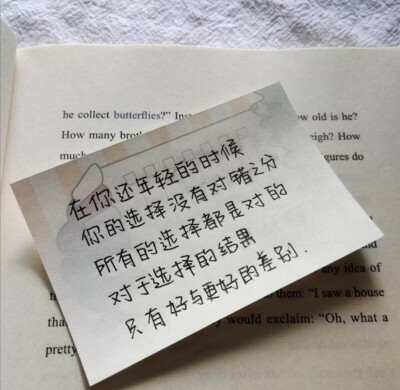 he collect butterflies?” Inst
ow old is he?
How many brot
eigh? How
much
gures do
在你还年轻的时候
你的选择没有对错之分
所有的选择都是对的
对于选择的结果
只有好与更好的差别.
nd
any idea of
th
them: “I saw a house
that
would exclaim: “Oh, what a
pretty